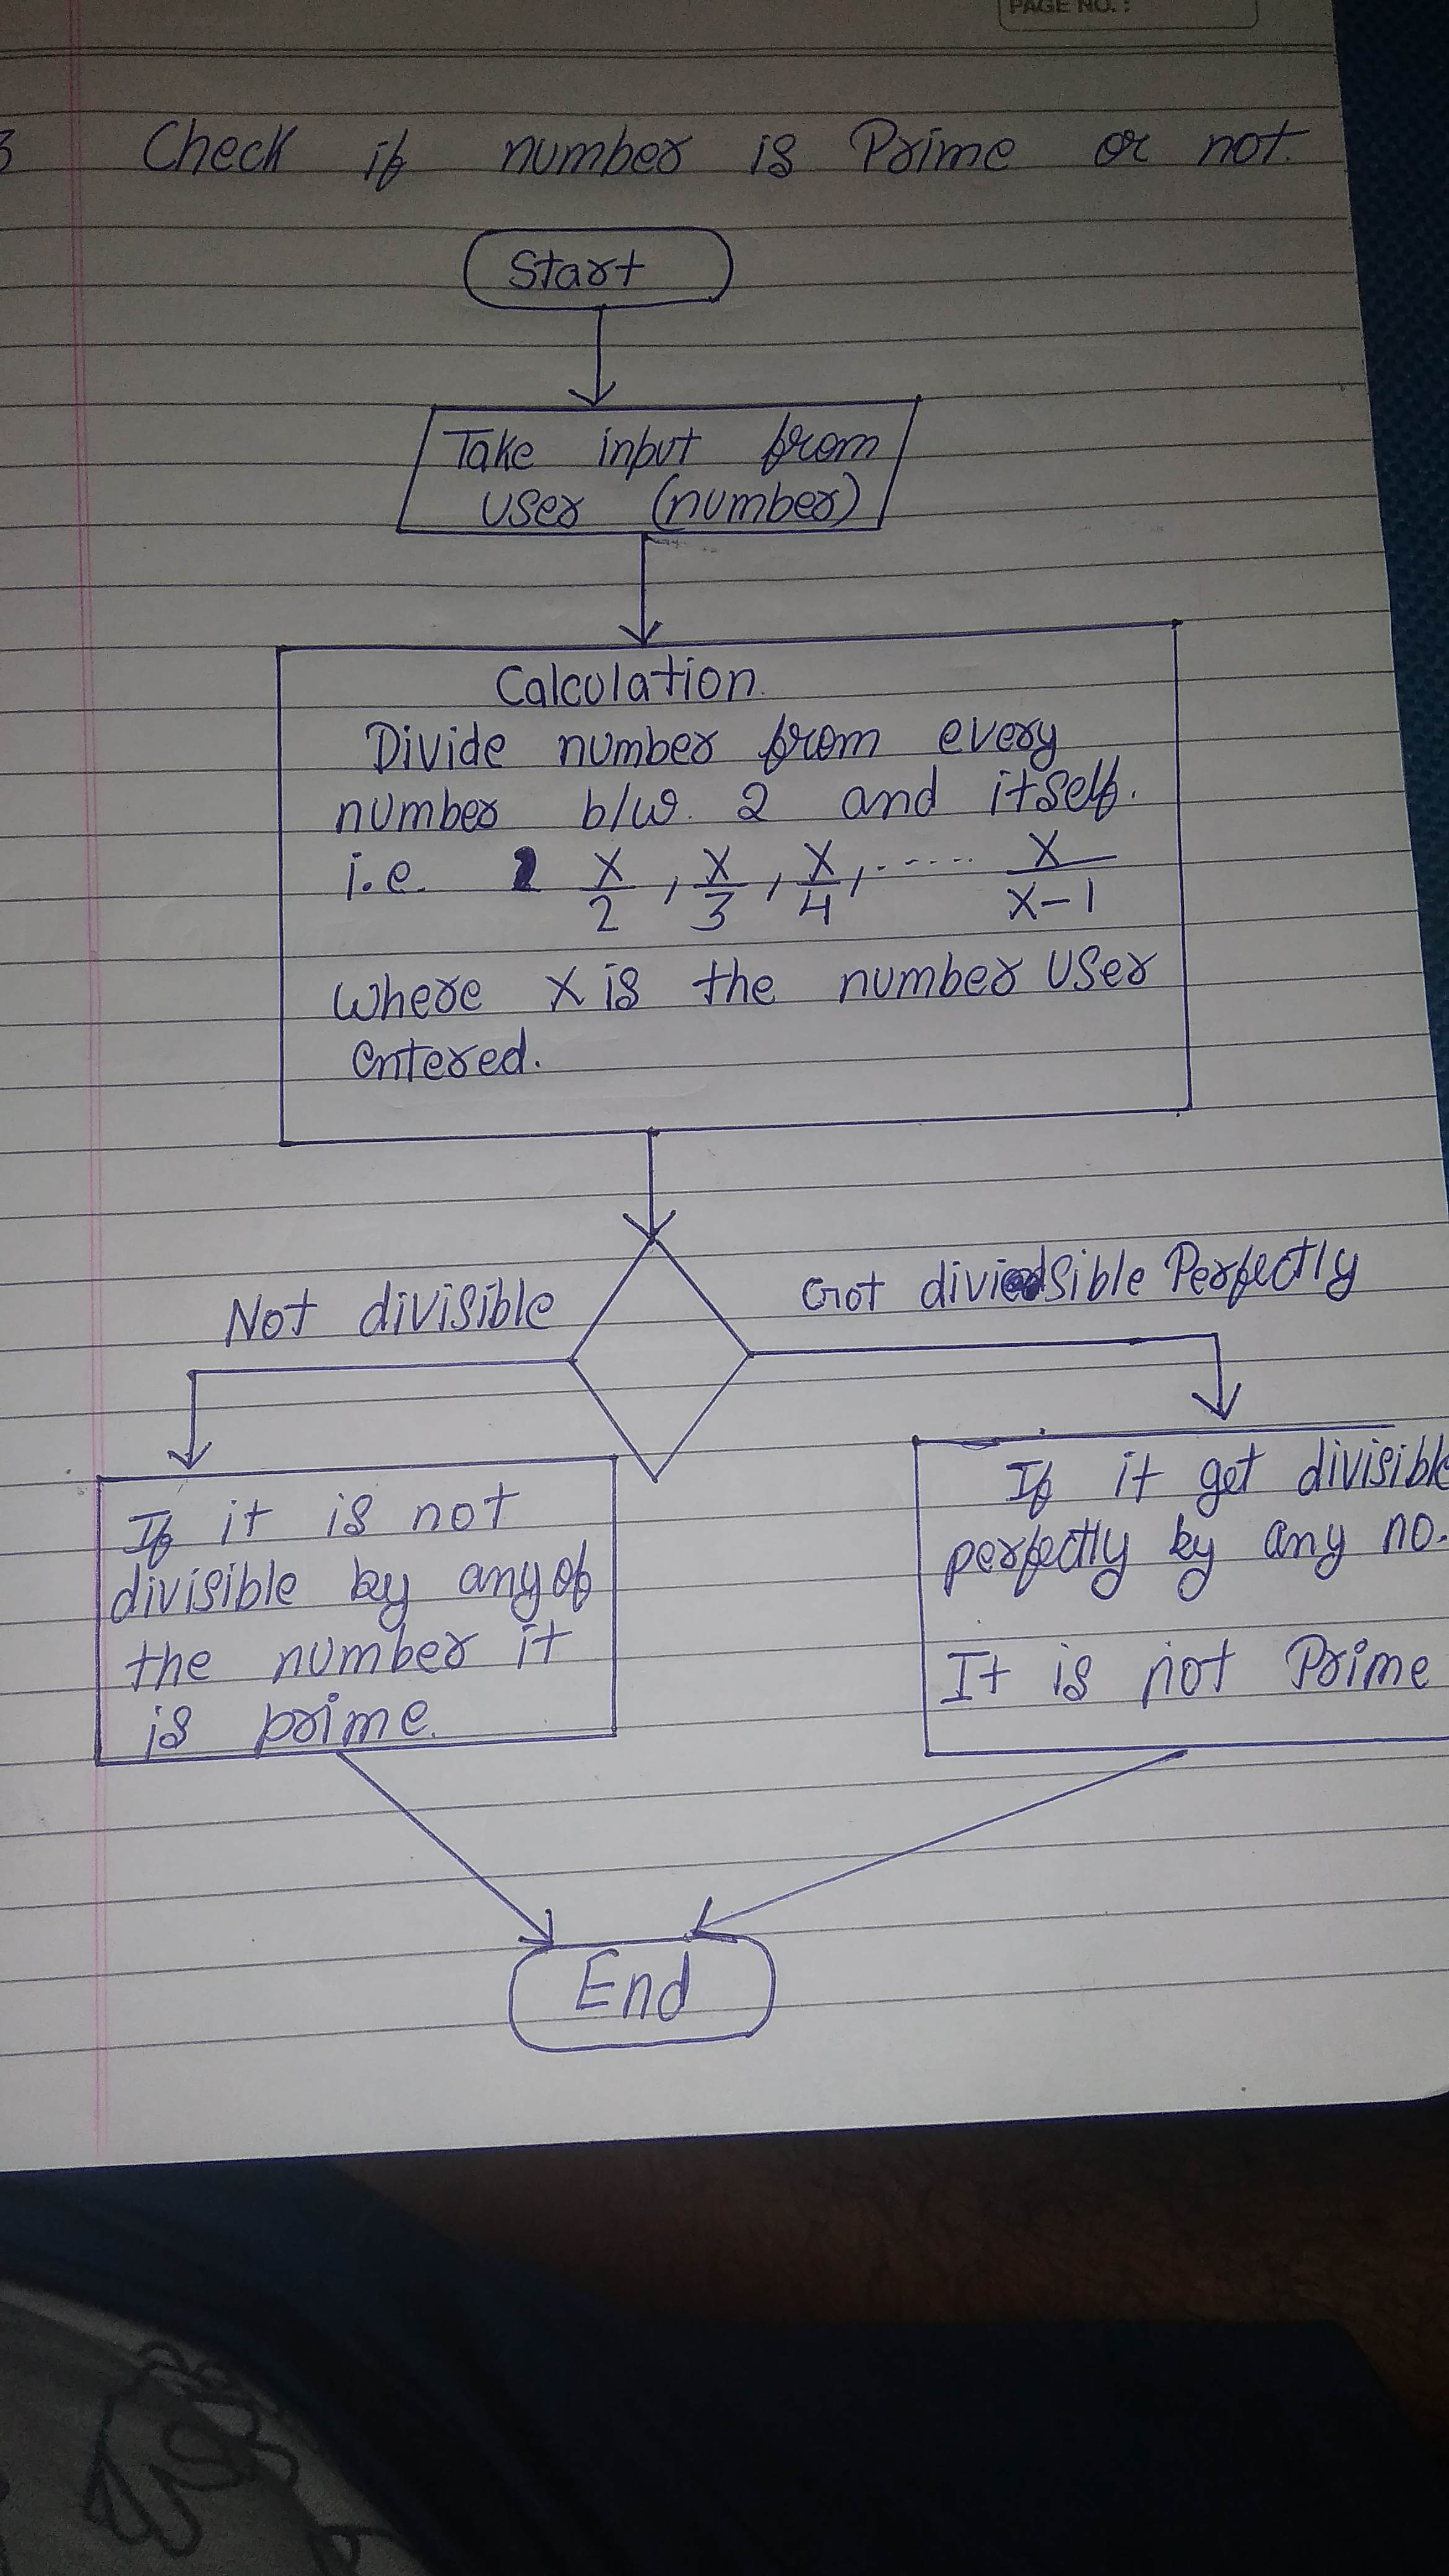 PAGE NO. :
3 Check if number is Prime or not.
Start
Take input from
user (number)
Calculation.
Divide number from every
number b/w. 2 and itself.
i.e. x/2, x/3, x/4, ...... x/x-1
where x is the number user
entered.
Not divisible
Got divisible Perfectly
If it is not
divisible by any of
the number it
is prime.
If it get divisible
perfectly by any no.
It is not Prime
End